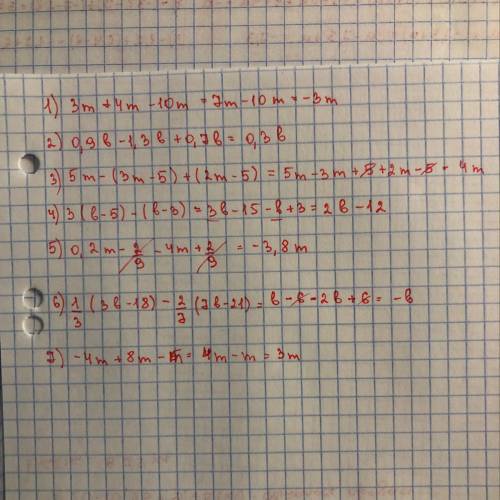 1) 3m + 4m - 10m = 7m - 10m = -3m
2) 0,9в - 1,3в + 0,7в = 0,3в
3) 5m - (3m - 5) + (2m - 5) = 5m - 3m + 5 + 2m - 5 = 4m
4) 3(в - 5) - (в - 3) = 3в - 15 - в + 3 = 2в - 12
5) 0,2m - 2/9 - 4m + 2/9 = -3,8m
6) 1/3 (3в - 18) - 2/7 (7в - 21) = в - 6 - 2в + 6 = -в
7) -4m + 8m - m = 4m - m = 3m